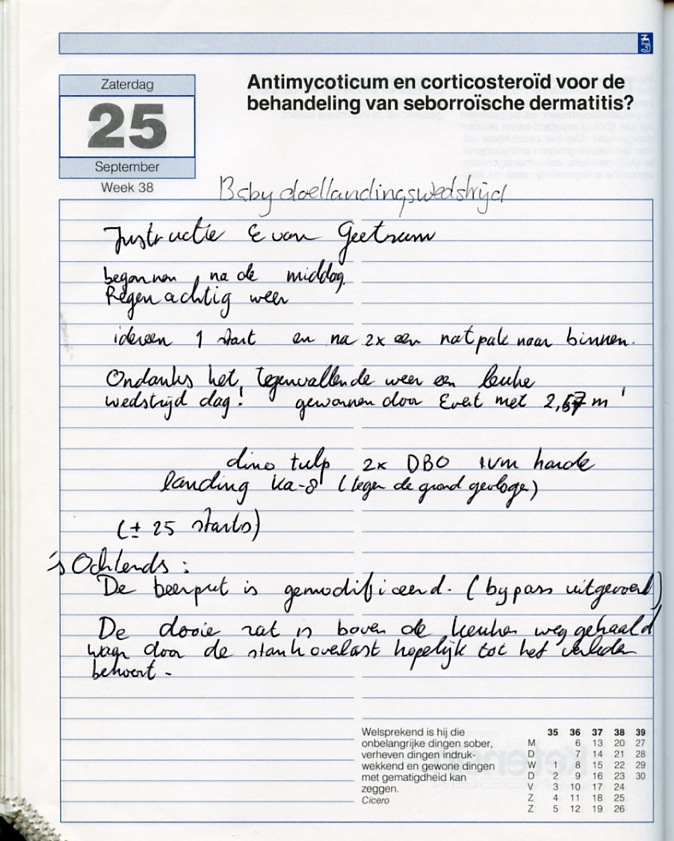 Zaterdag
25
September
Week 38
Antimycoticum en corticosteroïd voor de
behandeling van seborroïsche dermatitis?
Baby doellandingswedstrijd
Instructie E van Geetsum
begonnen na de middag.
Regenachtig weer
idereen 1 start en na 2x een nat pak naar binnen.
Ondanks het, tegenvallende weer een leuke
wedstrijd dag! gewonnen door Evert met 2,67 m
dino tulp 2x DBO ivm harde
landing Ka-8 (tegen de grond gevlogen)
(± 25 starts)
's Ochtends:
De beerput is gemodificeerd. (bypass uitgevoerd)
De dooie rat is boven de keuken weggehaald
waar door de stankoverlast hopelijk tot het verleden
behoort.
Welsprekend is hij die
onbelangrijke dingen sober,
verheven dingen indruk-
wekkend en gewone dingen
met gematigdheid kan
zeggen.
Cicero
35 36 37 38 39
M 6 13 20 27
D 7 14 21 28
W 1 8 15 22 29
D 2 9 16 23 30
V 3 10 17 24
Z 4 11 18 25
Z 5 12 19 26